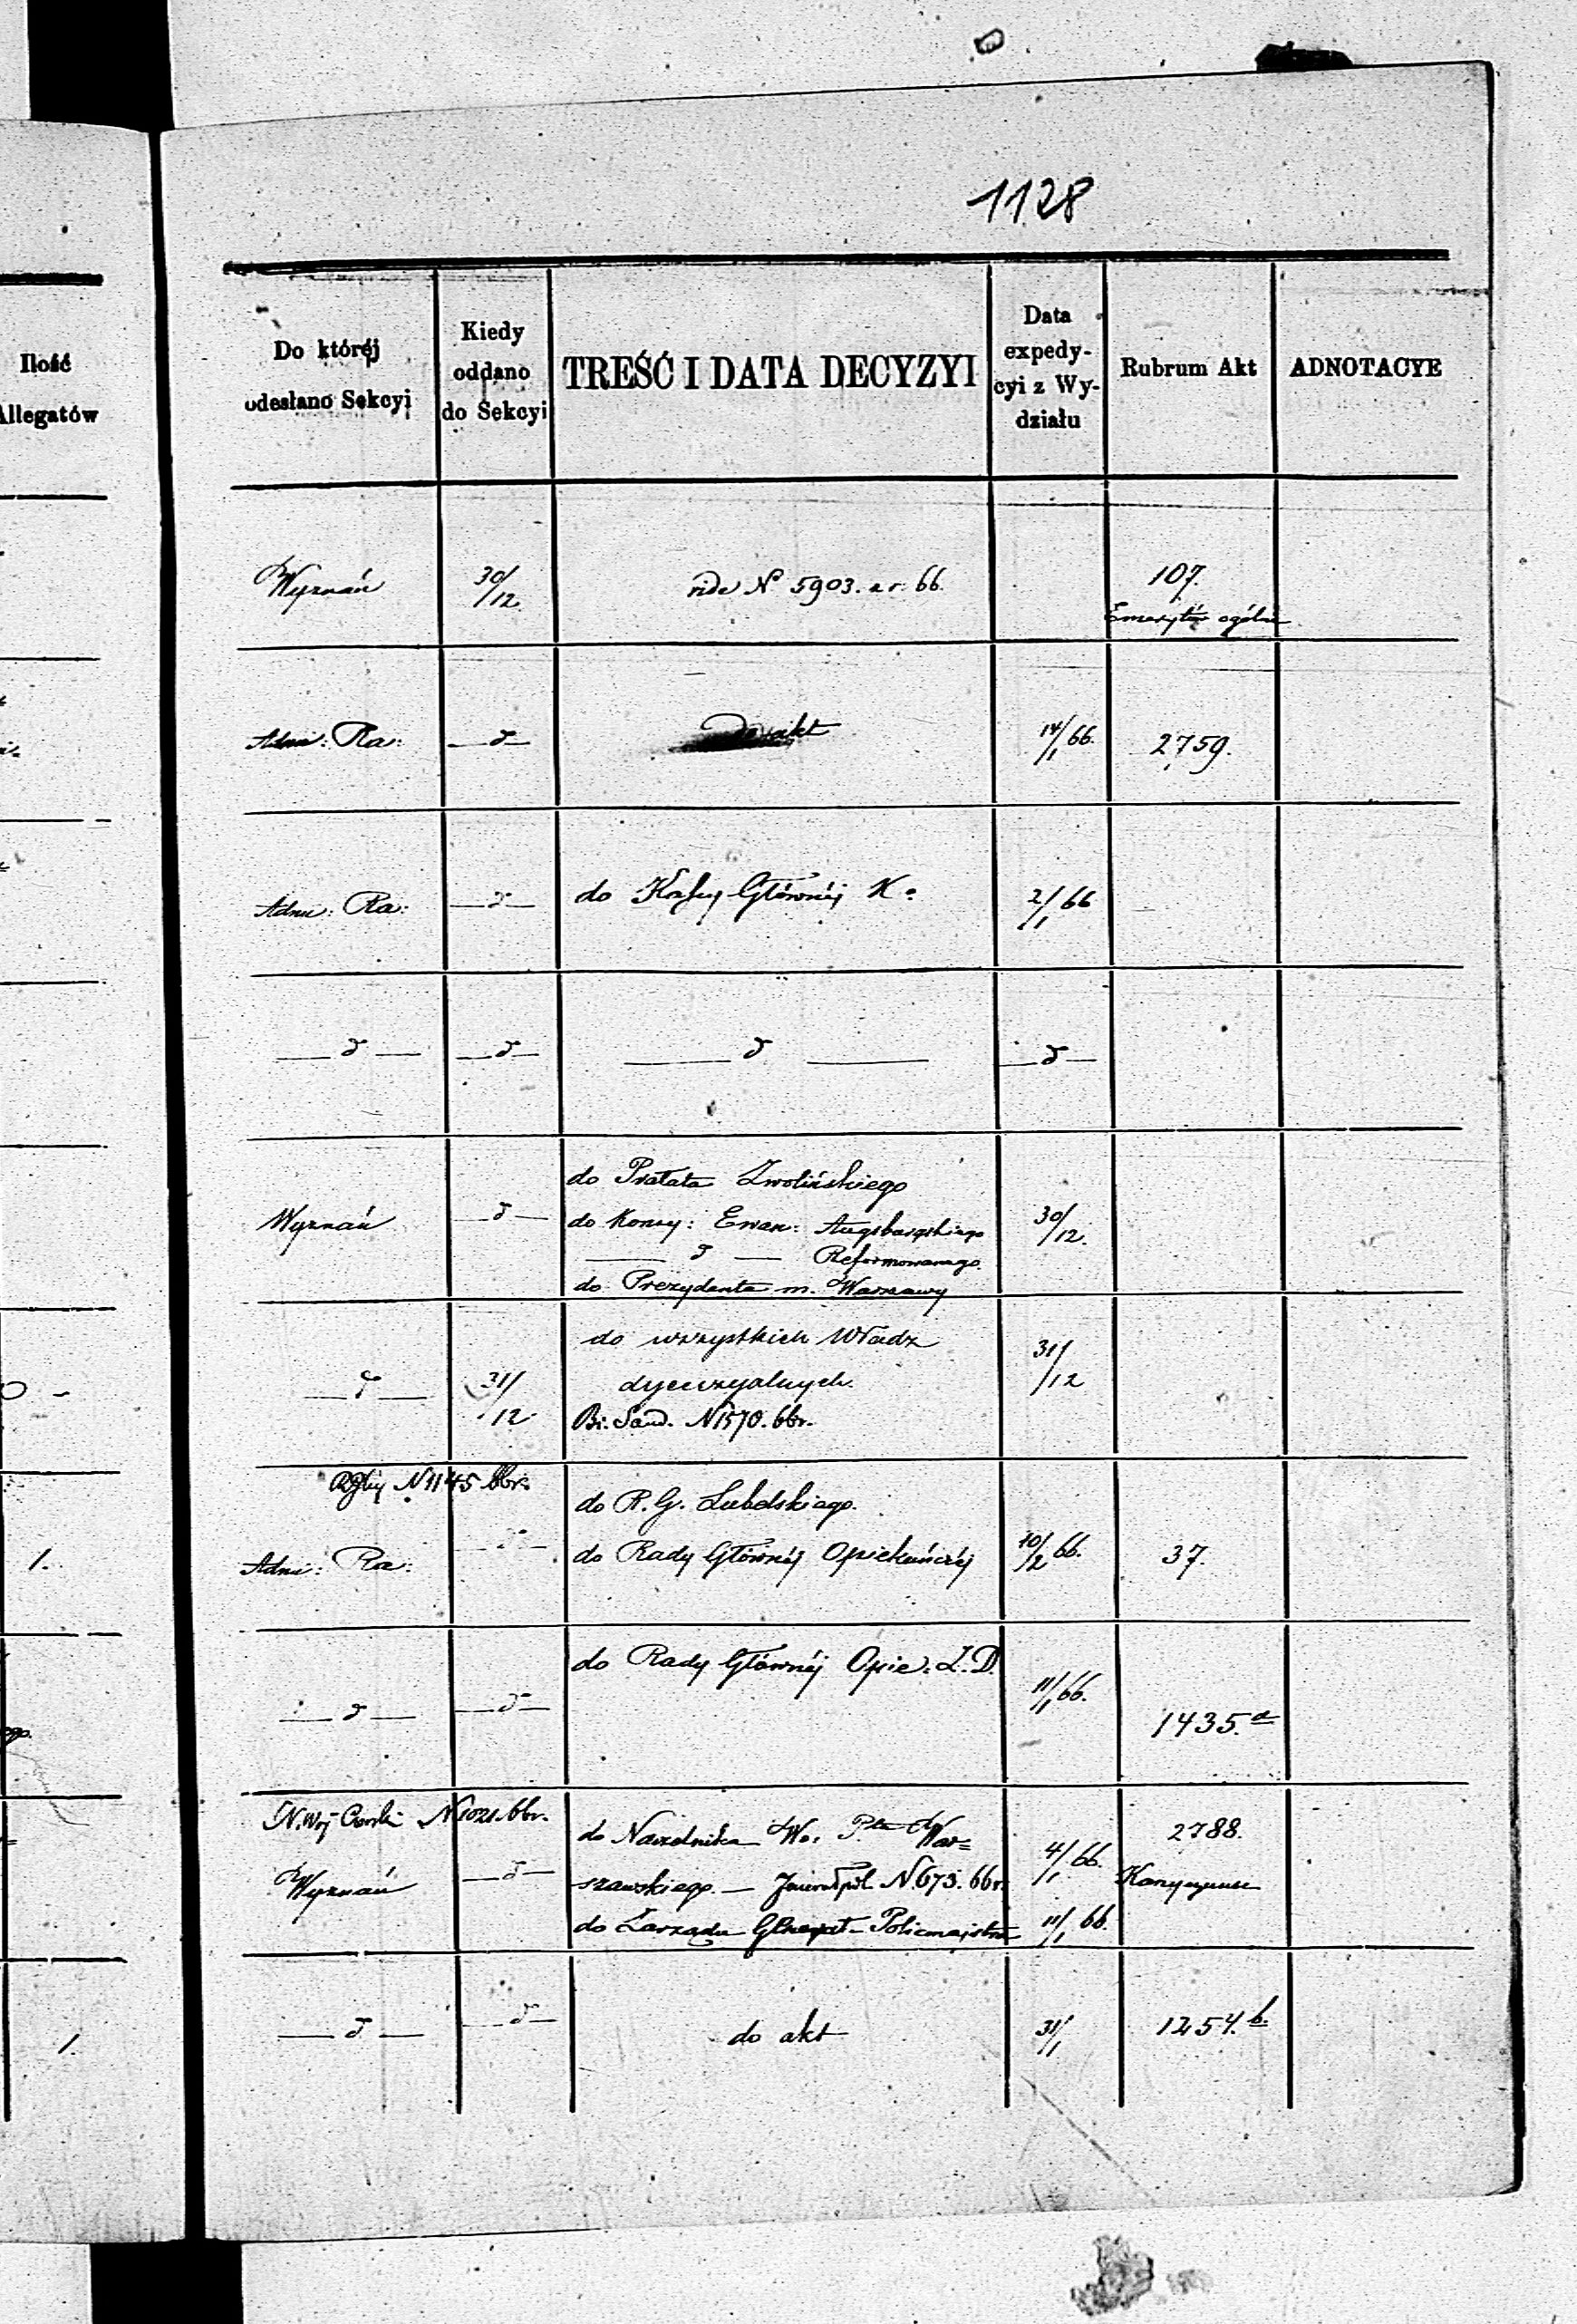 1128
Ilość
Allegatów
Do której
odesłano Sekcyi
Kiedy
oddano
do Sekcyi
TREŚĆ I DATA DECYZYI
Data
expedy-
cyi z Wy-
działu
Rubrum Akt
ADNOTACYE
Wyznań
30/12
vide No 5903. z r. 66.
107.
Emerytów ogólne
Adm: Ra:
—d—
do akt
14/1 66.
2759.
Adm: Ra:
—d—
do Kassy Głównéj K
2/1 66
—d—
—d—
—d—
—d—
Wyznań
—d—
do Prałata Zwolińskiego
do Konsy: Ewan: Augsburgskiego
—d— Reformowanego.
do Prezydenta m. Warszawy
30/12.
—d—
31/12
do wszystkich Władz
dyecezyalnych.
Bi. Sand. N 1570. 66r.
31/12
N 1145 66r.
1.
Adm: Ra:
do R. G. Lubelskiego.
do Rady Głównéj Opiekuńczéj
10/2 66.
37.
—d—
—d—
do Rady Głównéj Opie: Z. D.
11/1 66.
1435.a
N. Woj. N 1021. 66r.
Wyznań
—d—
do Naczelnika Wo. War=
szawskiego. — N. 673. 66r.
do Zarządu Policmajstra
4/1 66.
11/1 66.
2788.
1.
—d—
—d—
do akt
31/1
1254.b.